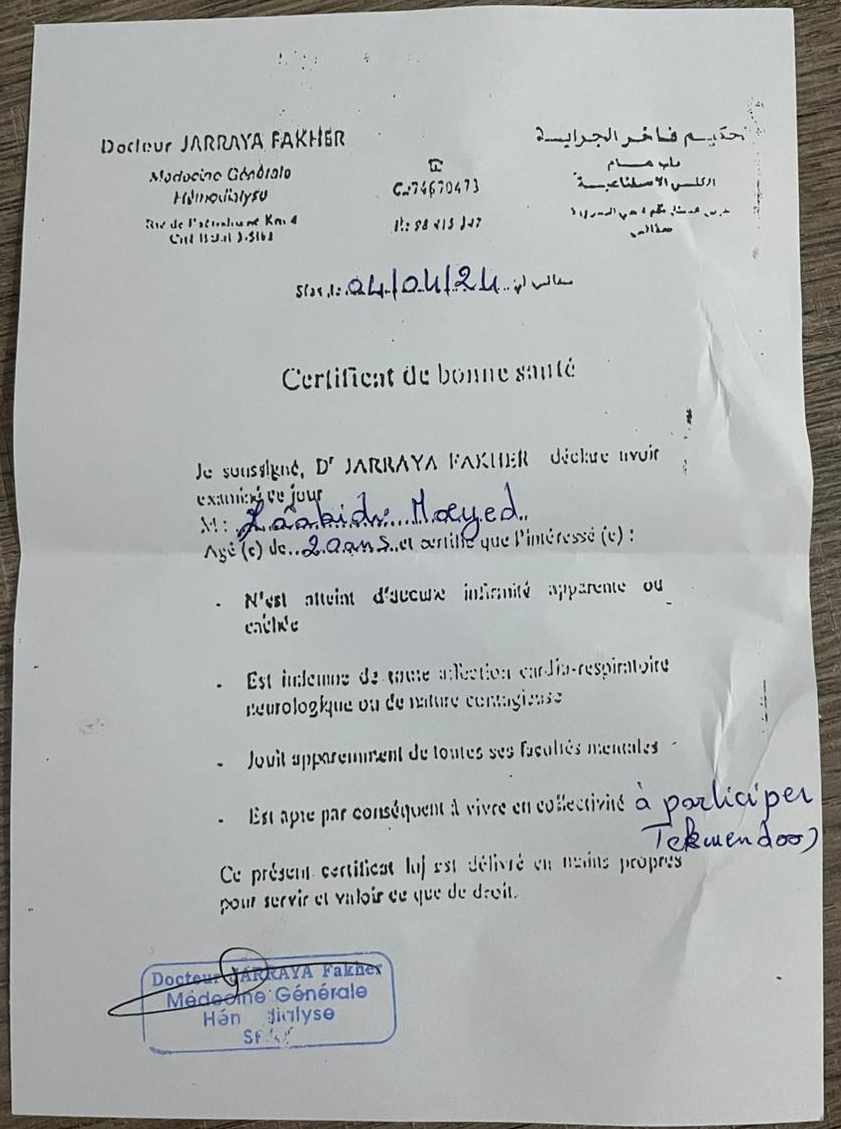 Docteur JARRAYA FAKHER
Médecine Générale
Hémodialyse
Rte de Km 4
☎
C:74670473
P: 98 415
حكيم فاخر الجراية
طب عام
الكلى الاصطناعية
صفاقس
Sfax, le: 04/04/24 صفاقس في
Certificat de bonne santé
Je soussigné, Dr JARRAYA FAKHER déclare avoir
examiné ce jour
M: Zâabidi Mayed
Agé (e) de 20 ans et certifie que l'intéressé (e) :
- N'est atteint d'aucune infirmité apparente ou
cachée
- Est indemne de toute affection cardio-respiratoire
neurologique ou de nature contagieuse
- Jouit apparemment de toutes ses facultés mentales
- Est apte par conséquent à vivre en collectivité à participer
Tekwendoo)
Ce présent certificat lui est délivré en mains propres
pour servir et valoir ce que de droit.
Docteur JARRAYA Fakher
Médecine Générale
Hém dialyse
Sfax